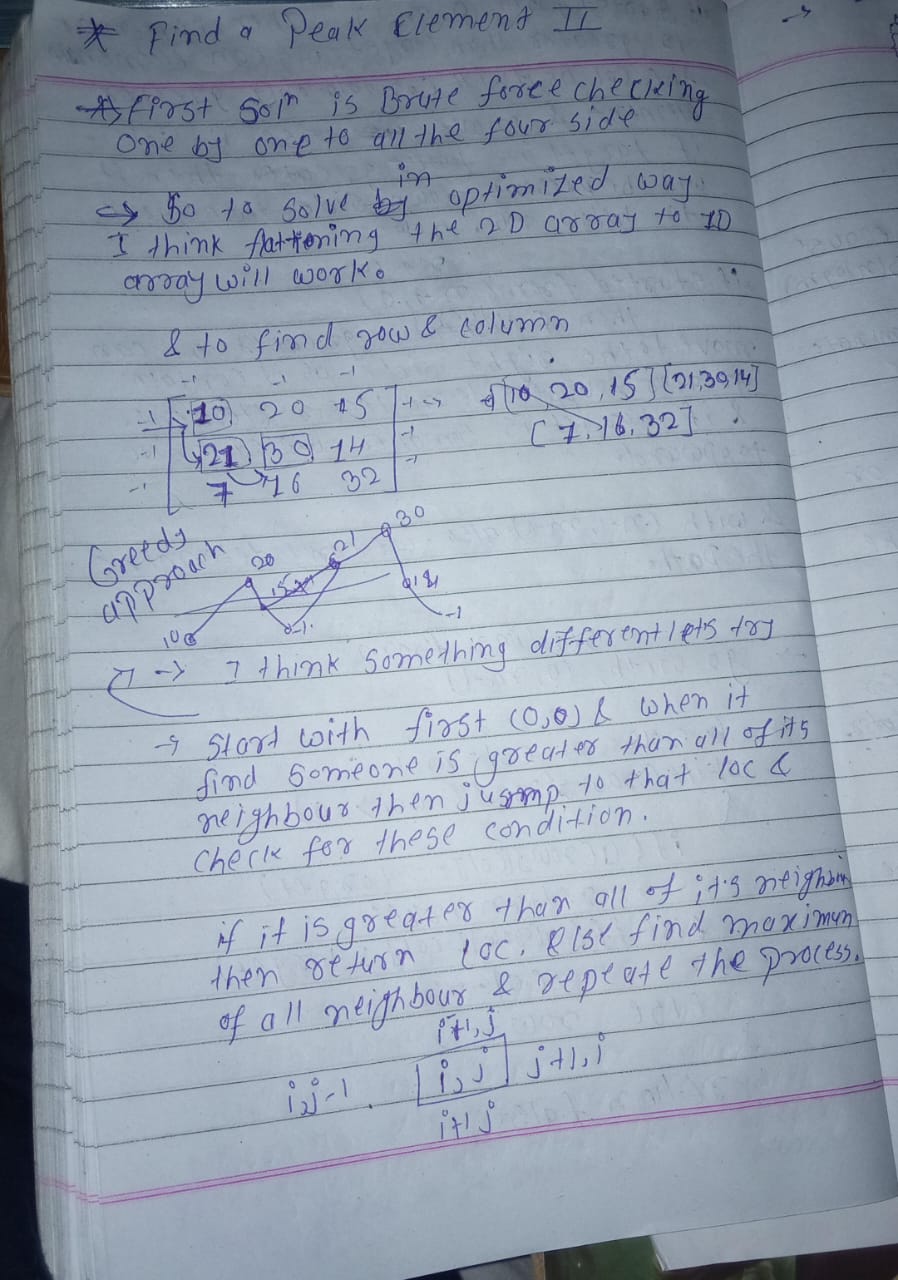 * Find a Peak Element II
→ First Soln is Brute force checking
one by one to all the four side
in
→ So to solve by optimized way
I think flattening the 2D array to 1D
array will work.
& to find row & column
-1 -1 -1
-1 10 20 15 → [10, 20, 15] [21,30,14]
-1 21 30 14 -1 [7, 16, 32]
-1 7 16 32 -
Greedy
approach
30
20 21
15
10 -1 14 -1
→ I think something different lets try
→ Start with first (0,0) & when it
find someone is greater than all of its
neighbour then jump to that loc &
check for these condition.
if it is greater than all of it's neighbour
then return loc. Else find maximum
of all neighbour & repeate the process.
i+1, j
i, j-1 i, j j+1, i
i+1 j